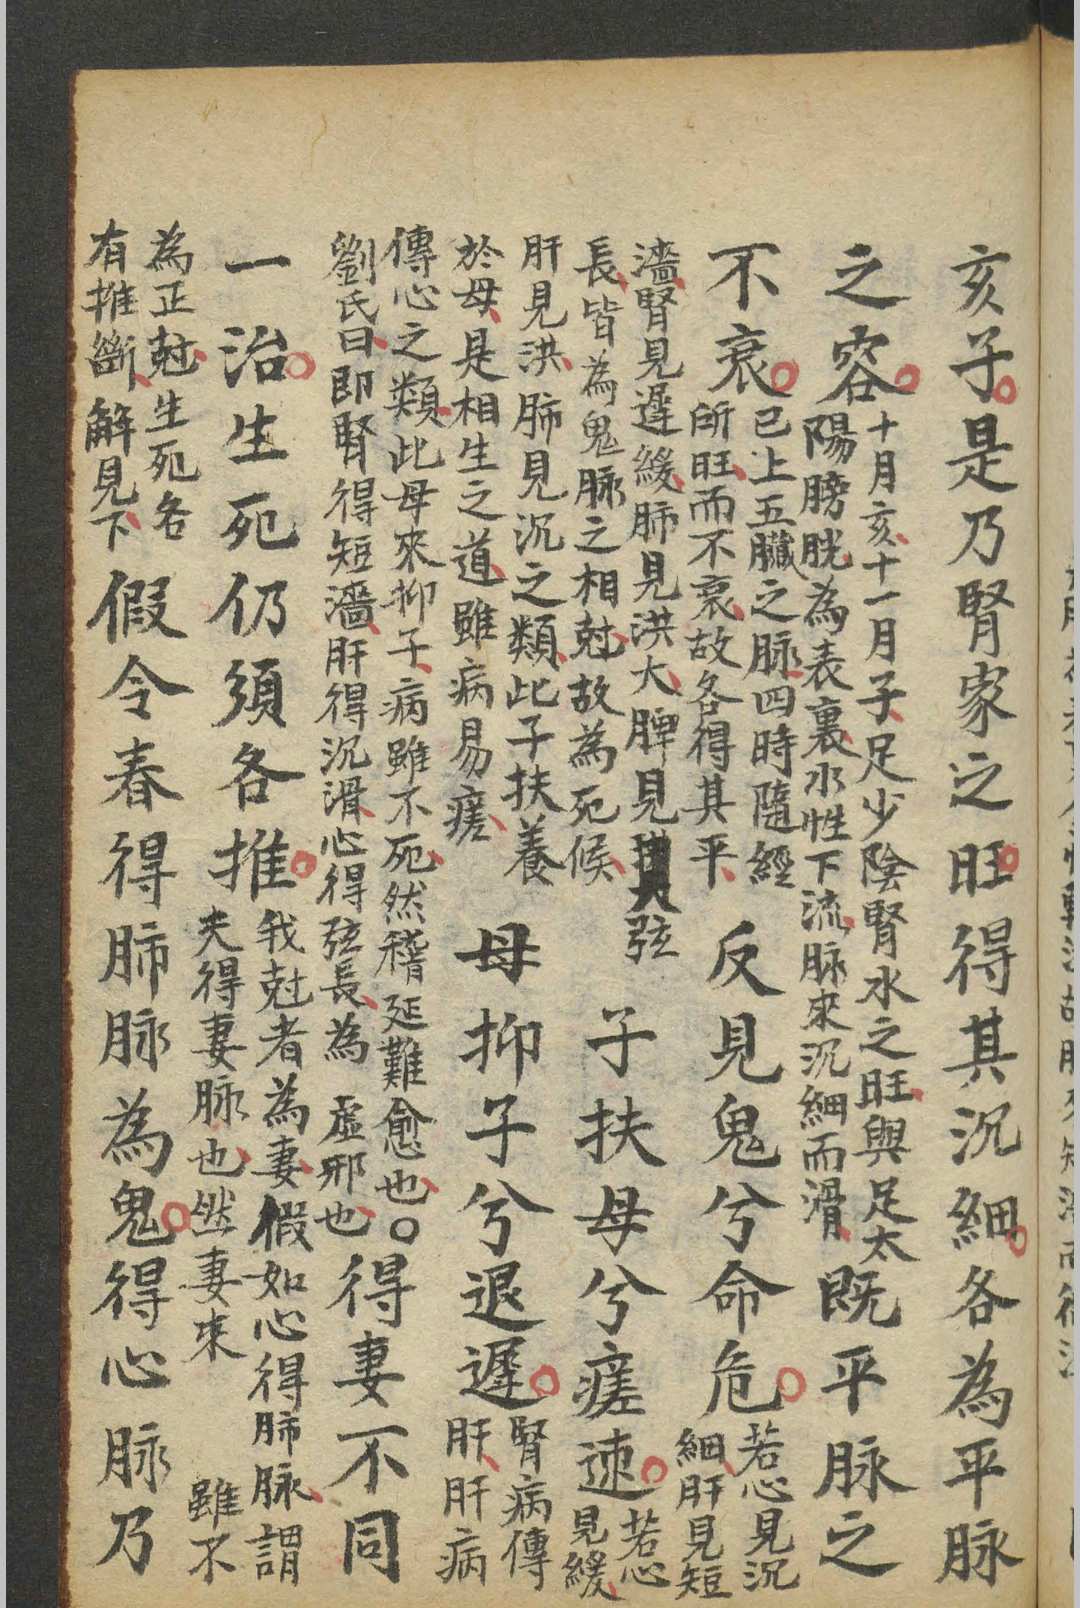 亥子是乃腎家之旺得其沉細各為平脉
之容
十月亥十一月子足少陰腎水之旺與足太
陽膀胱為表裏水性下流脉來沉細而滑
既平脉之
不衰
已上五臟之脉四時隨經
所旺而不衰故各得其平
反見鬼兮命危
若心見沉
細肝見短
濇腎見遲緩肺見洪大脾見弦
長皆為鬼脉之相尅故為死候
子扶母兮瘥速
若心
見緩
肝見洪肺見沉之類此子扶養
於母是相生之道雖病易瘥
母抑子兮退遲
腎病傳
肝肝病
傳心之類此母來抑子病雖不死然稽延難愈也○
劉氏曰即腎得短濇肝得沉滑心得弦長為虛邪也
得妻不同
一治生死仍須各推
我尅者為妻假如心得肺脉謂
夫得妻脉也然妻來雖不
為正尅生死各
有推斷解見下
假令春得肺脉為鬼得心脉乃